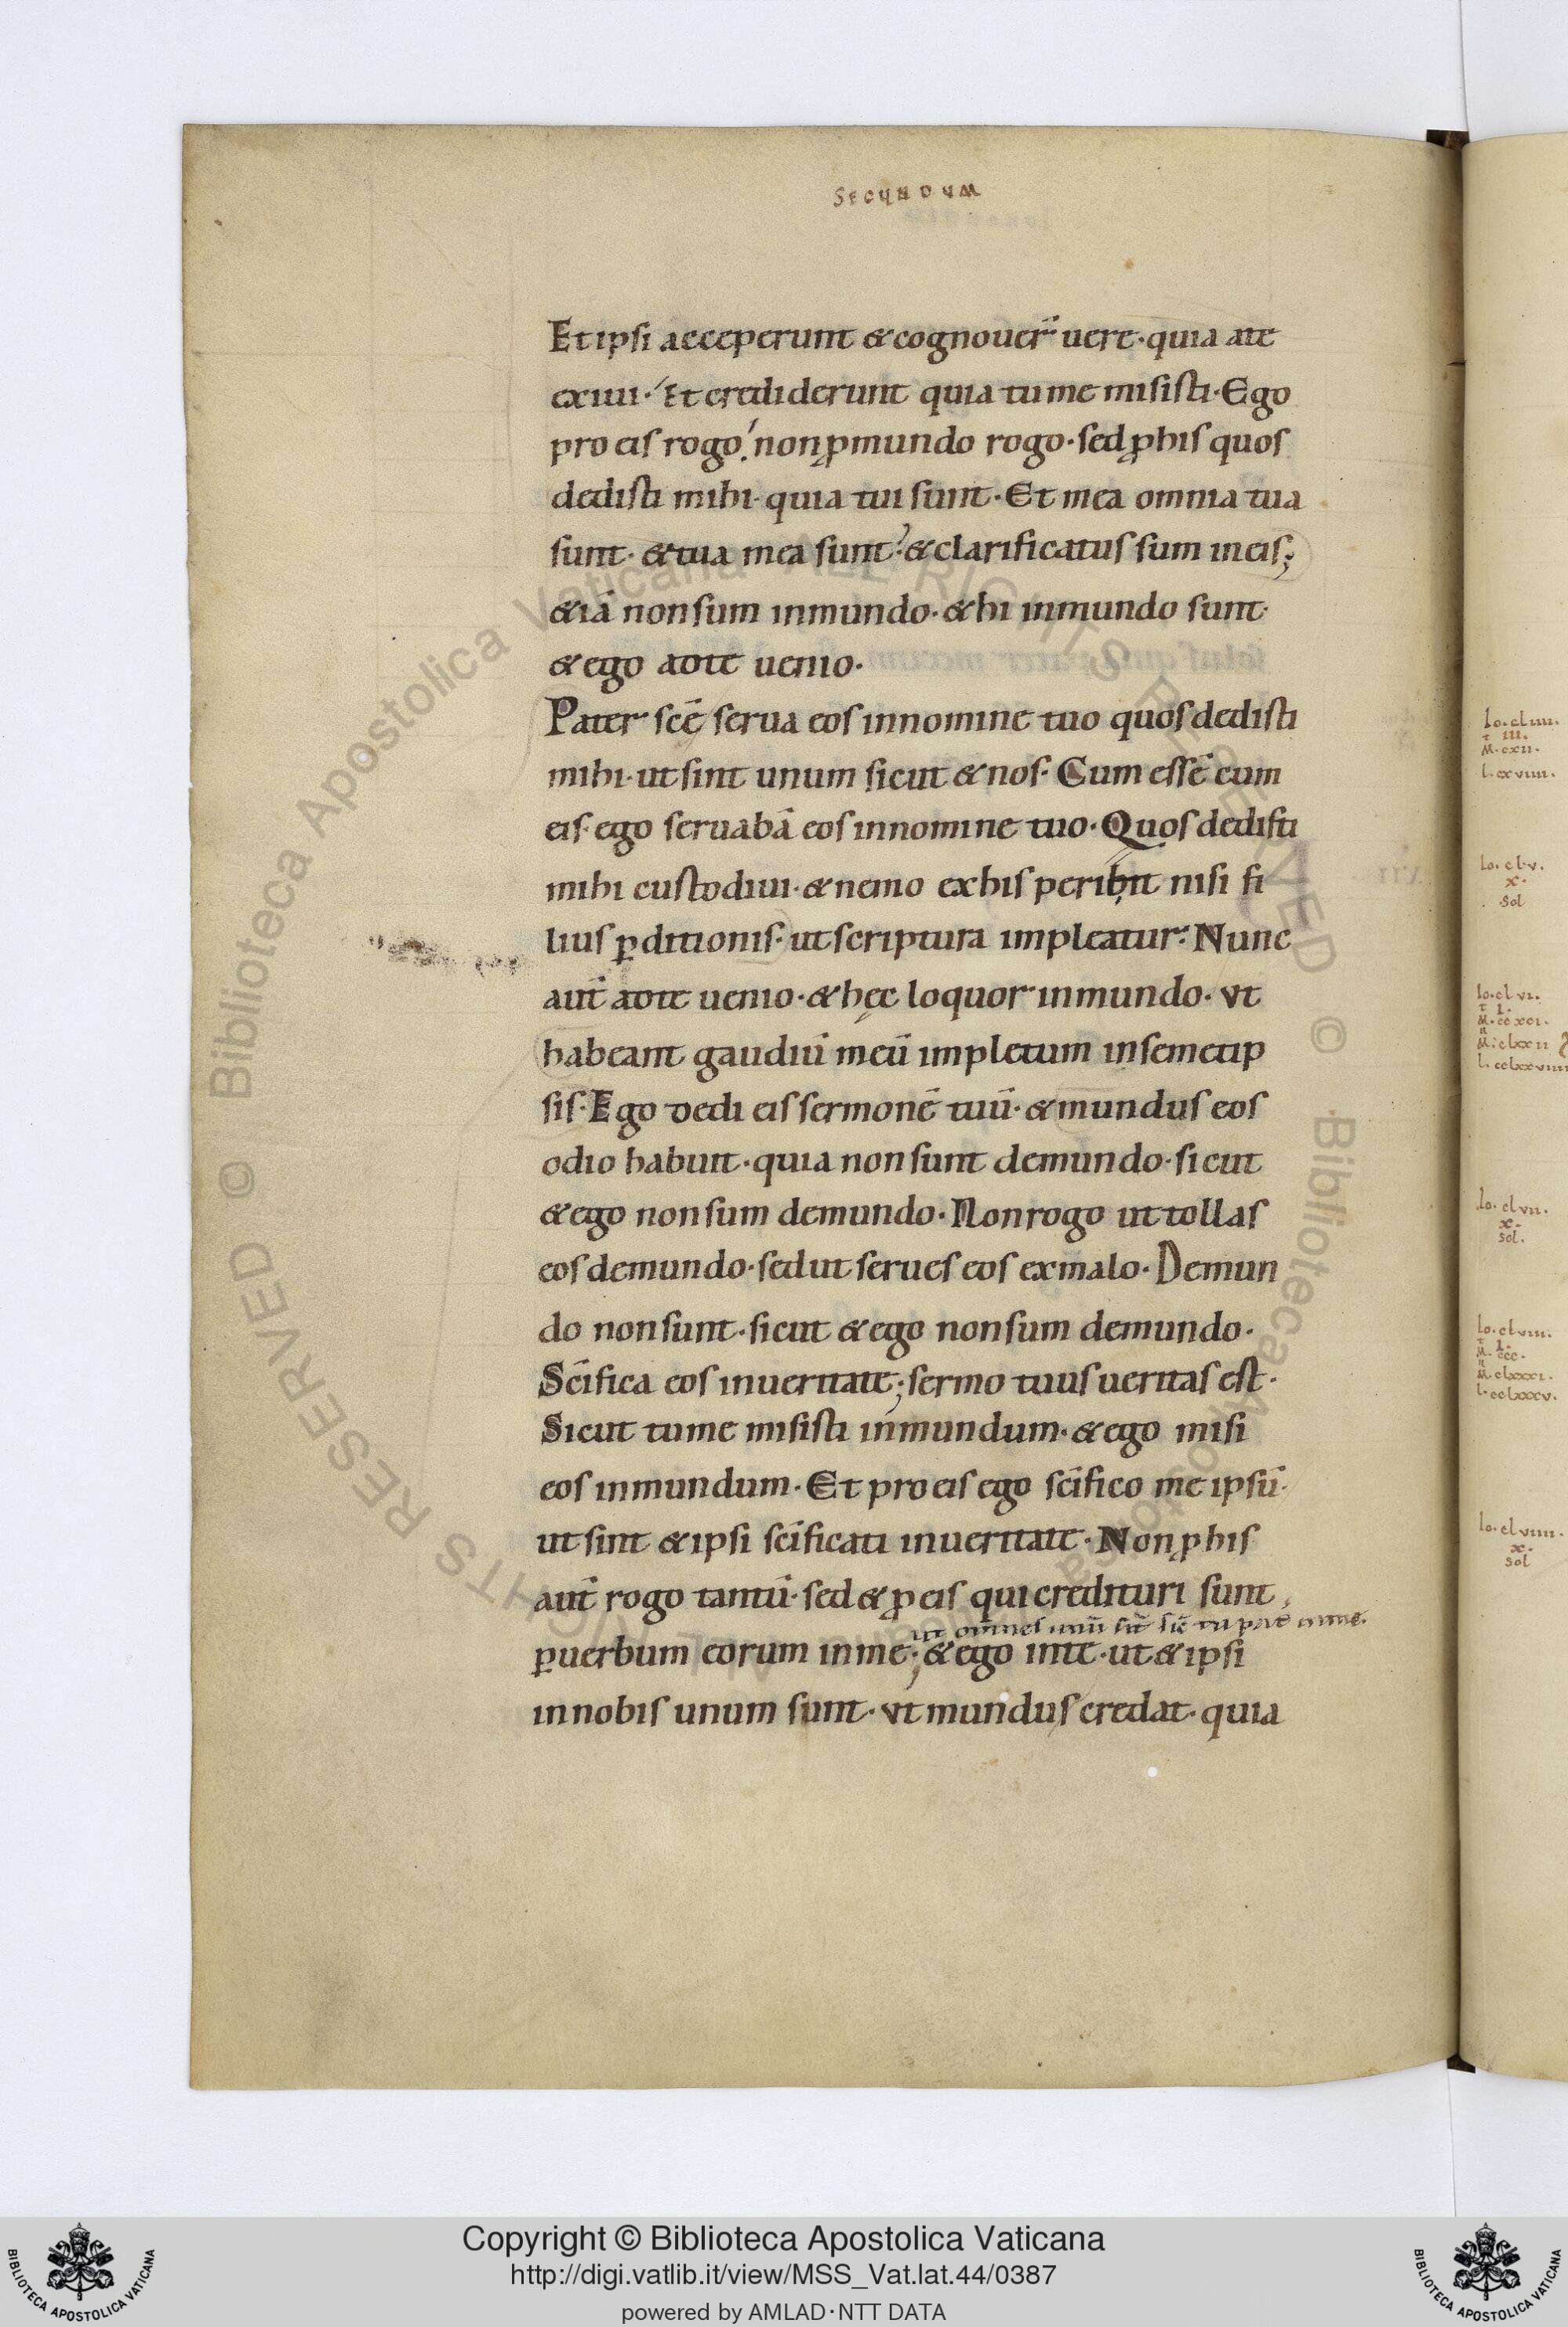 SECUNDUM
Et ipsi acceperunt & cognouer̄ uere · quia a te
exiui · Et crediderunt quia tu me misisti · Ego
pro eis rogo · non ꝓ mundo rogo · sed ꝓ his quos
dedisti mihi · quia tui sunt · Et mea omnia tua
sunt · & tua mea sunt · & clarificatus sum in eis ;
& iā non sum in mundo · & hi in mundo sunt ·
& ego ad te uenio ·
Pater scē serua eos in nomine tuo quos dedisti
mihi · ut sint unum sicut & nos · Cum essē cum
eis · ego seruabā eos in nomine tuo · Quos dedisti
mihi custodiui · & nemo ex his peribit nisi fi
lius ꝑditionis · ut scriptura impleatur · Nunc
aut̄ ad te uenio · & hęc loquor in mundo · vt
habeant gaudiū meū impletum in semetip
sis · Ego dedi eis sermonē tuū · & mundus eos
odio habuit · quia non sunt de mundo · sicut
& ego non sum de mundo · Non rogo ut tollas
eos de mundo · sed ut serues eos ex malo · De mun
do non sunt · sicut & ego non sum de mundo ·
Sc̄ifica eos in ueritate ; sermo tuus ueritas est ·
Sicut tu me misisti in mundum · & ego misi
eos in mundum · Et pro eis ego sc̄ifico me ipsū ·
ut sint & ipsi sc̄ificati in ueritate · Non ꝓ his
aut̄ rogo tantū · sed & ꝓ eis qui credituri sunt
ut omnes unū sīt sic̄ tu pat̄ in me ·
ꝑ uerbum eorum in me ; & ego in te · ut & ipsi
in nobis unum sunt · vt mundus credat · quia
Io · cl iiii ·
t iii ·
M · cxii ·
l · cxviiii ·
Io · cl v ·
x ·
sol
Io · cl vi ·
t 1 ·
M · cc xci ·
M · clxx ii
l · cclxxviiii
Io · cl vii ·
x ·
sol ·
Io · cl viii ·
t 1 ·
M · ccc ·
M · clxxxi ·
l · cclxxxv ·
Io · cl viiii ·
x ·
sol
© Biblioteca Apostolica Vaticana ALL RIGHTS RESERVED © Biblioteca Apostolica Vaticana ALL RIGHTS RESERVED
Copyright © Biblioteca Apostolica Vaticana
http://digi.vatlib.it/view/MSS_Vat.lat.44/0387
powered by AMLAD·NTT DATA
BIBLIOTECA APOSTOLICA VATICANA
BIBLIOTECA APOSTOLICA VATICANA